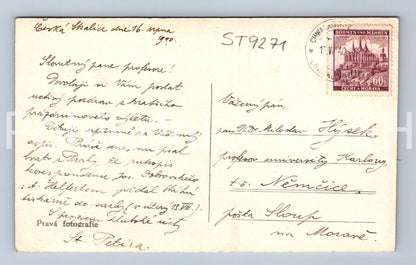 Česká Skalice dne 16. srpna
940.
ST9271
Slovutný pane profesore!
Dovoluji si Vám poslat
uctivý pozdrav s krátkého
prázdninového výletu.
Děkuji upřímně na Váš milý
dopis. Právě dnes mi psal
bratr z Prahy, že rukopis
korespondence Jos. Dobrovského
s A. Helfertem přidal
tiskárně do sazby (v úterý 13.VIII.)
S projevem hluboké úcty
St. Petíra
Pravá fotografie
BÖHMEN UND MÄHREN
60
ČECHY A MORAVA
Vážený pán
pan Dr. Miloslav Hýsek
profesor university Karlovy
t. č. Němčice
pošta Sloup
na Moravě